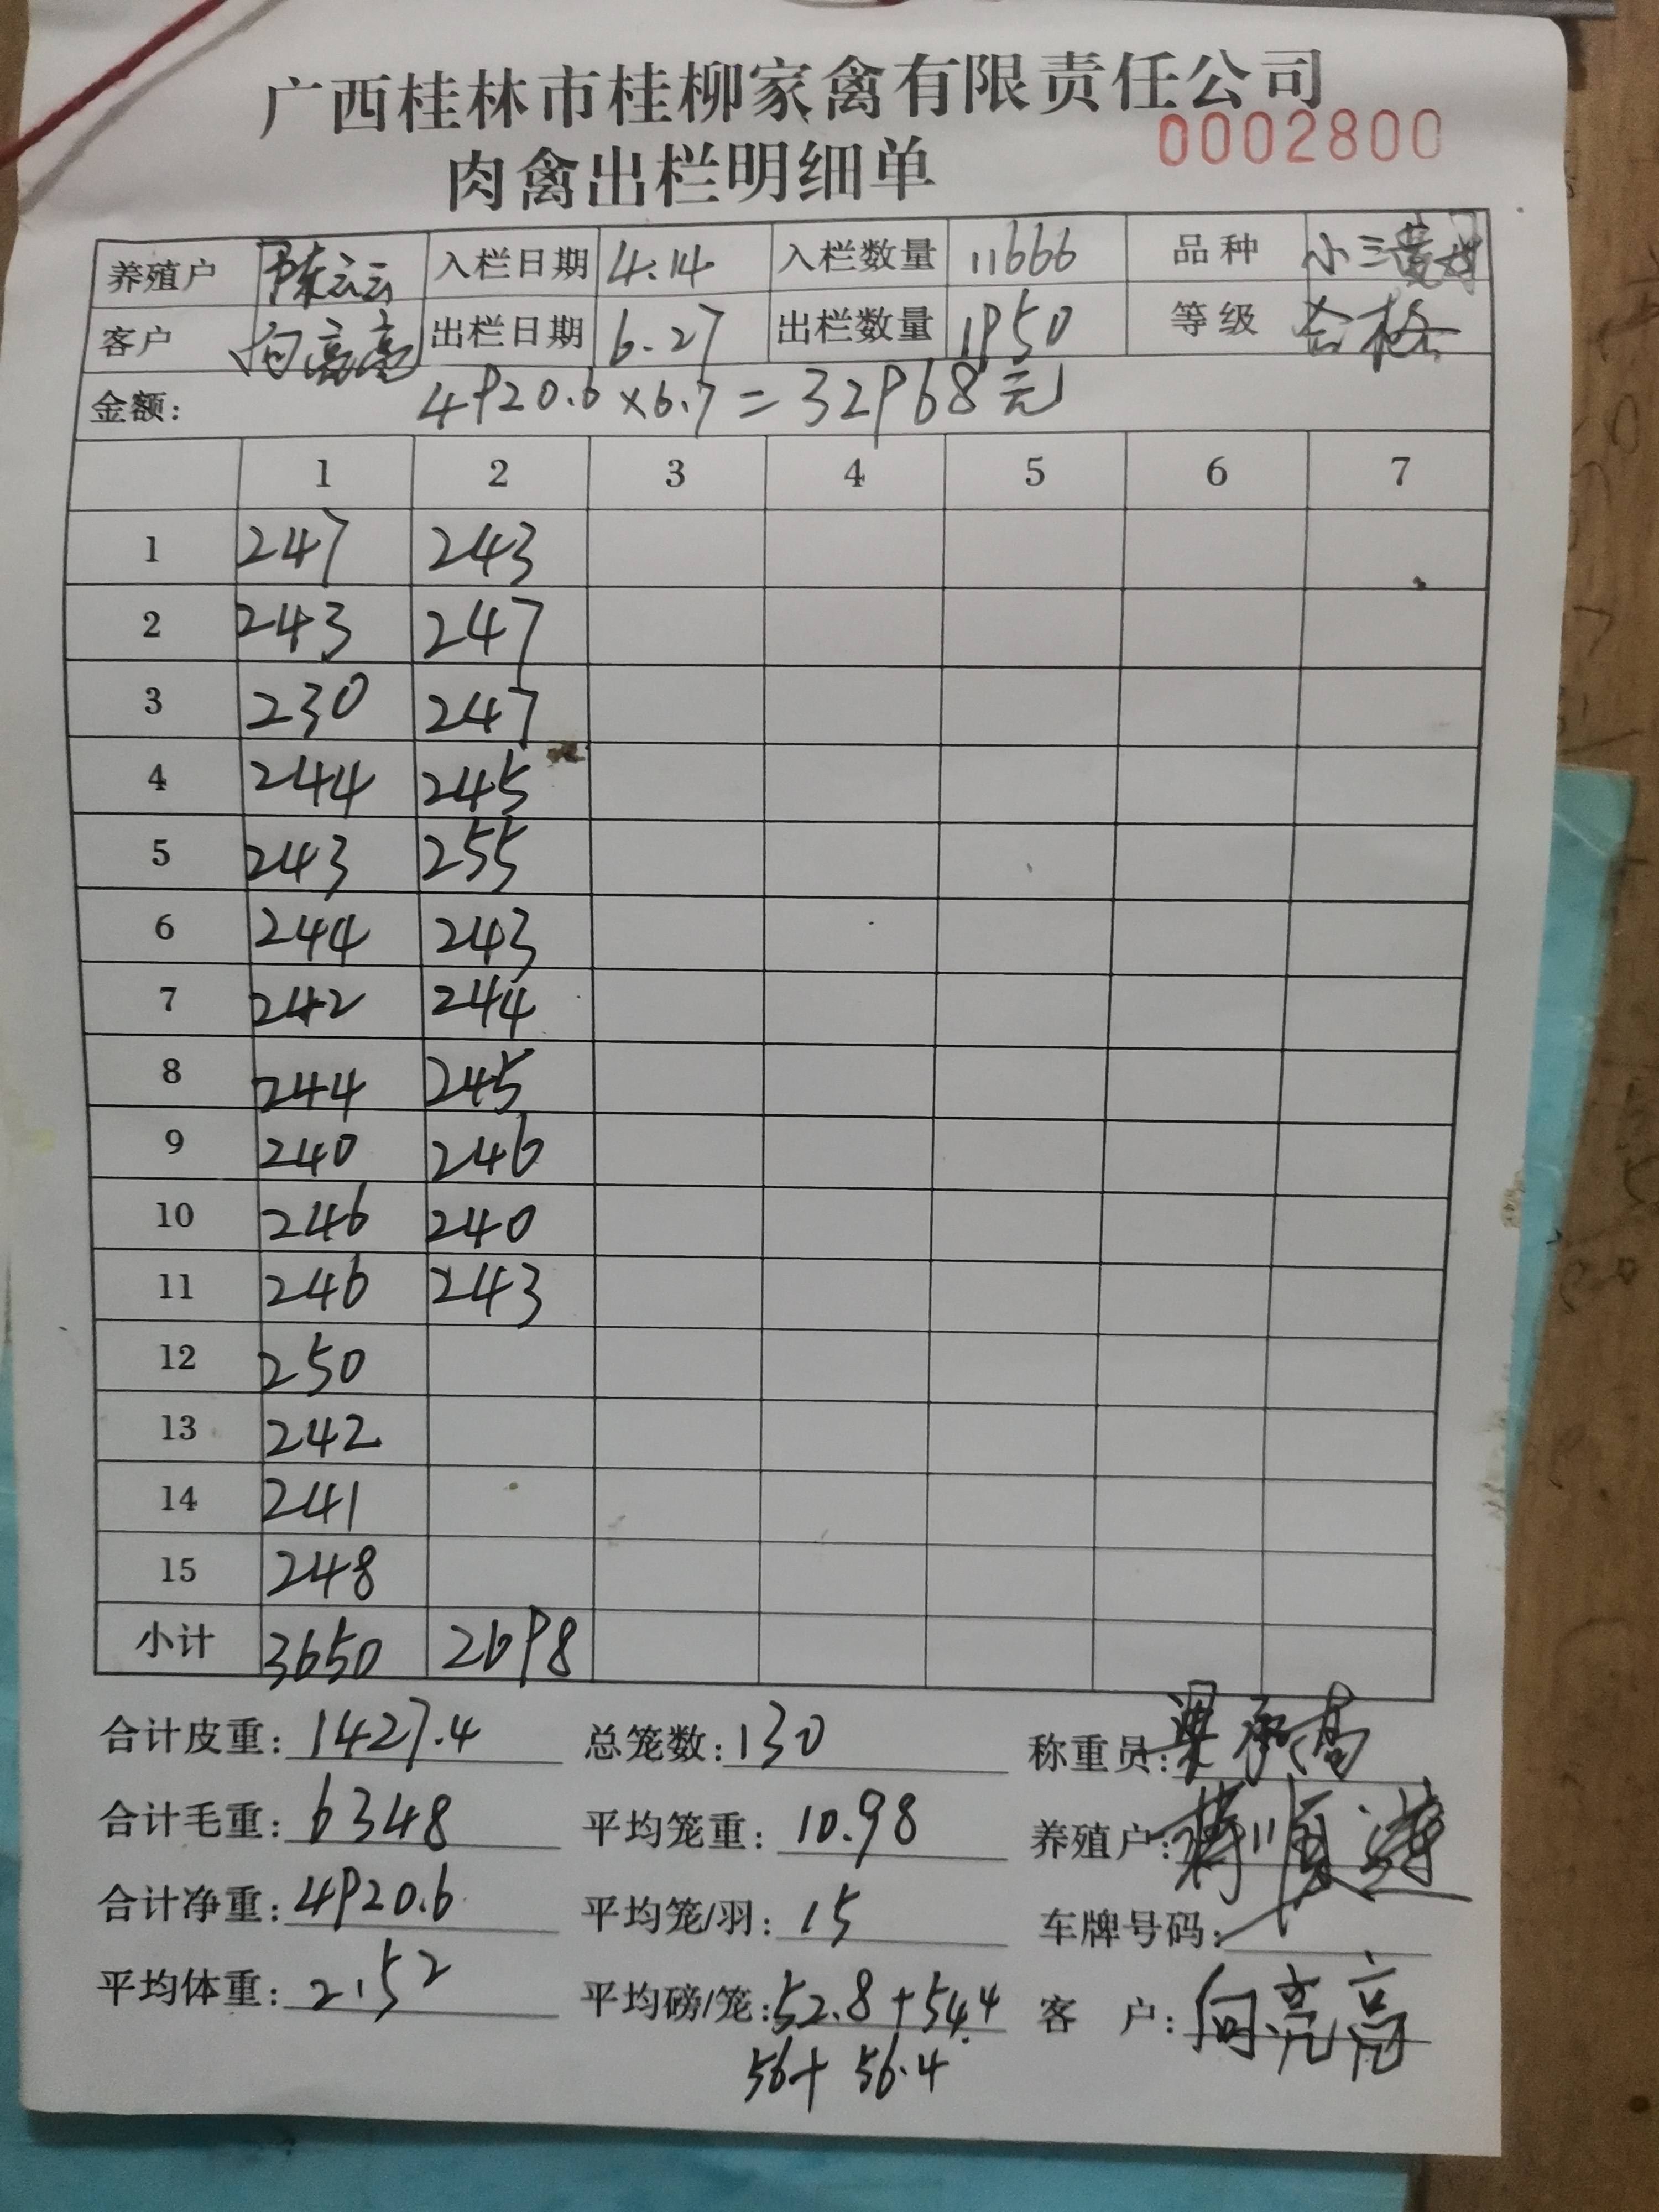 广西桂林市桂柳家禽有限责任公司
0002800
肉禽出栏明细单
养殖户 陈云云 入栏日期 4.14 入栏数量 11666 品种 小三黄
客户 向亮亮 出栏日期 6.27 出栏数量 1950 等级 合格
金额: 4920.6×6.7=32968元
1 2 3 4 5 6 7
1 247 243
2 243 247
3 230 247
4 244 245
5 243 255
6 244 243
7 242 244
8 244 245
9 240 246
10 246 240
11 246 243
12 250
13 242
14 241
15 248
小计 3650 2698
合计皮重: 1427.4 总笼数: 130 称重员: 梁承高
合计毛重: 6348 平均笼重: 10.98 养殖户:
合计净重: 4920.6 平均笼/羽: 15 车牌号码:
平均体重: 2.52 平均磅/笼: 52.8+54.4 客 户: 向亮亮
56+ 56.4